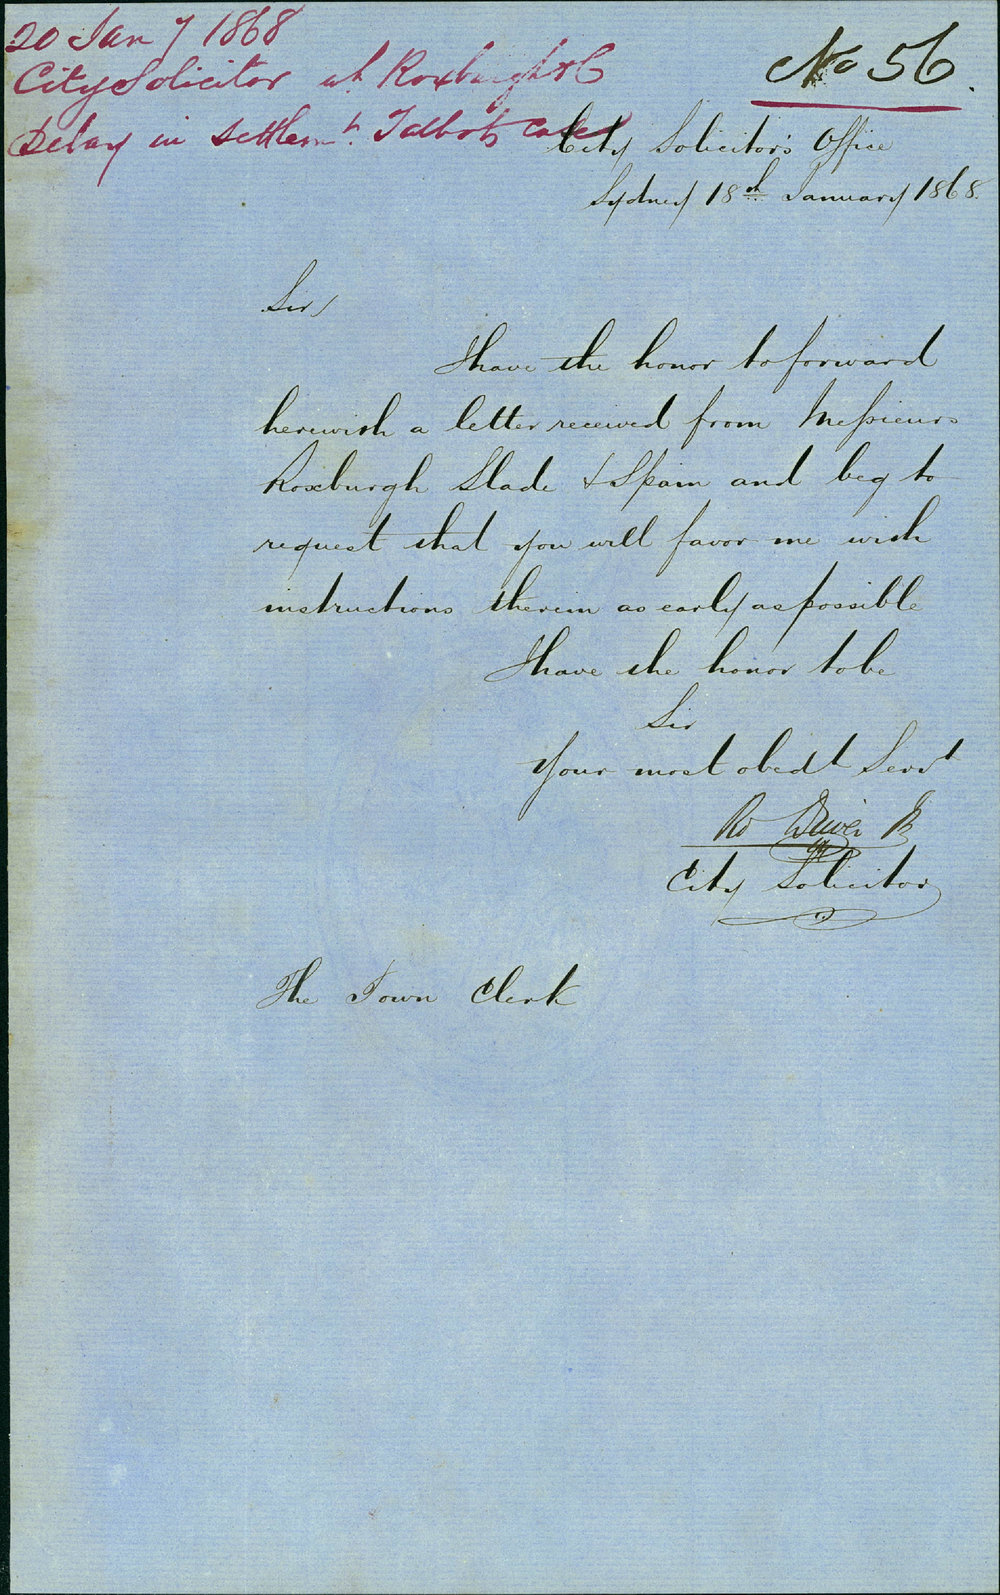 20 Jany 1868
City Solicitor wt Roxburgh & C
Delay in Settlemt. Talbots Case
No 56.
City Solicitor's Office
Sydney 18th January 1868.
Sir,
I have the honor to forward
herewith a letter received from Messieurs
Roxburgh Slade & Spain and beg to
request that you will favor me with
instructions therein as early as possible
I have the honor to be
Sir
Your most obedt Servt
Rd Driver Jr
City Solicitor
The Town Clerk